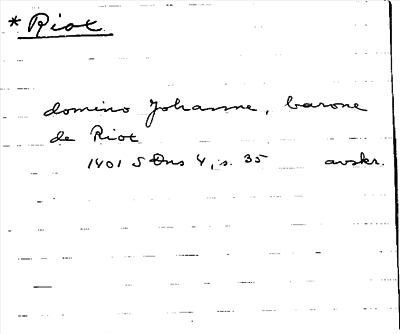 * Riot
domino Johanne, barone
de Riot
1401 SOns 4, s. 35 avskr.